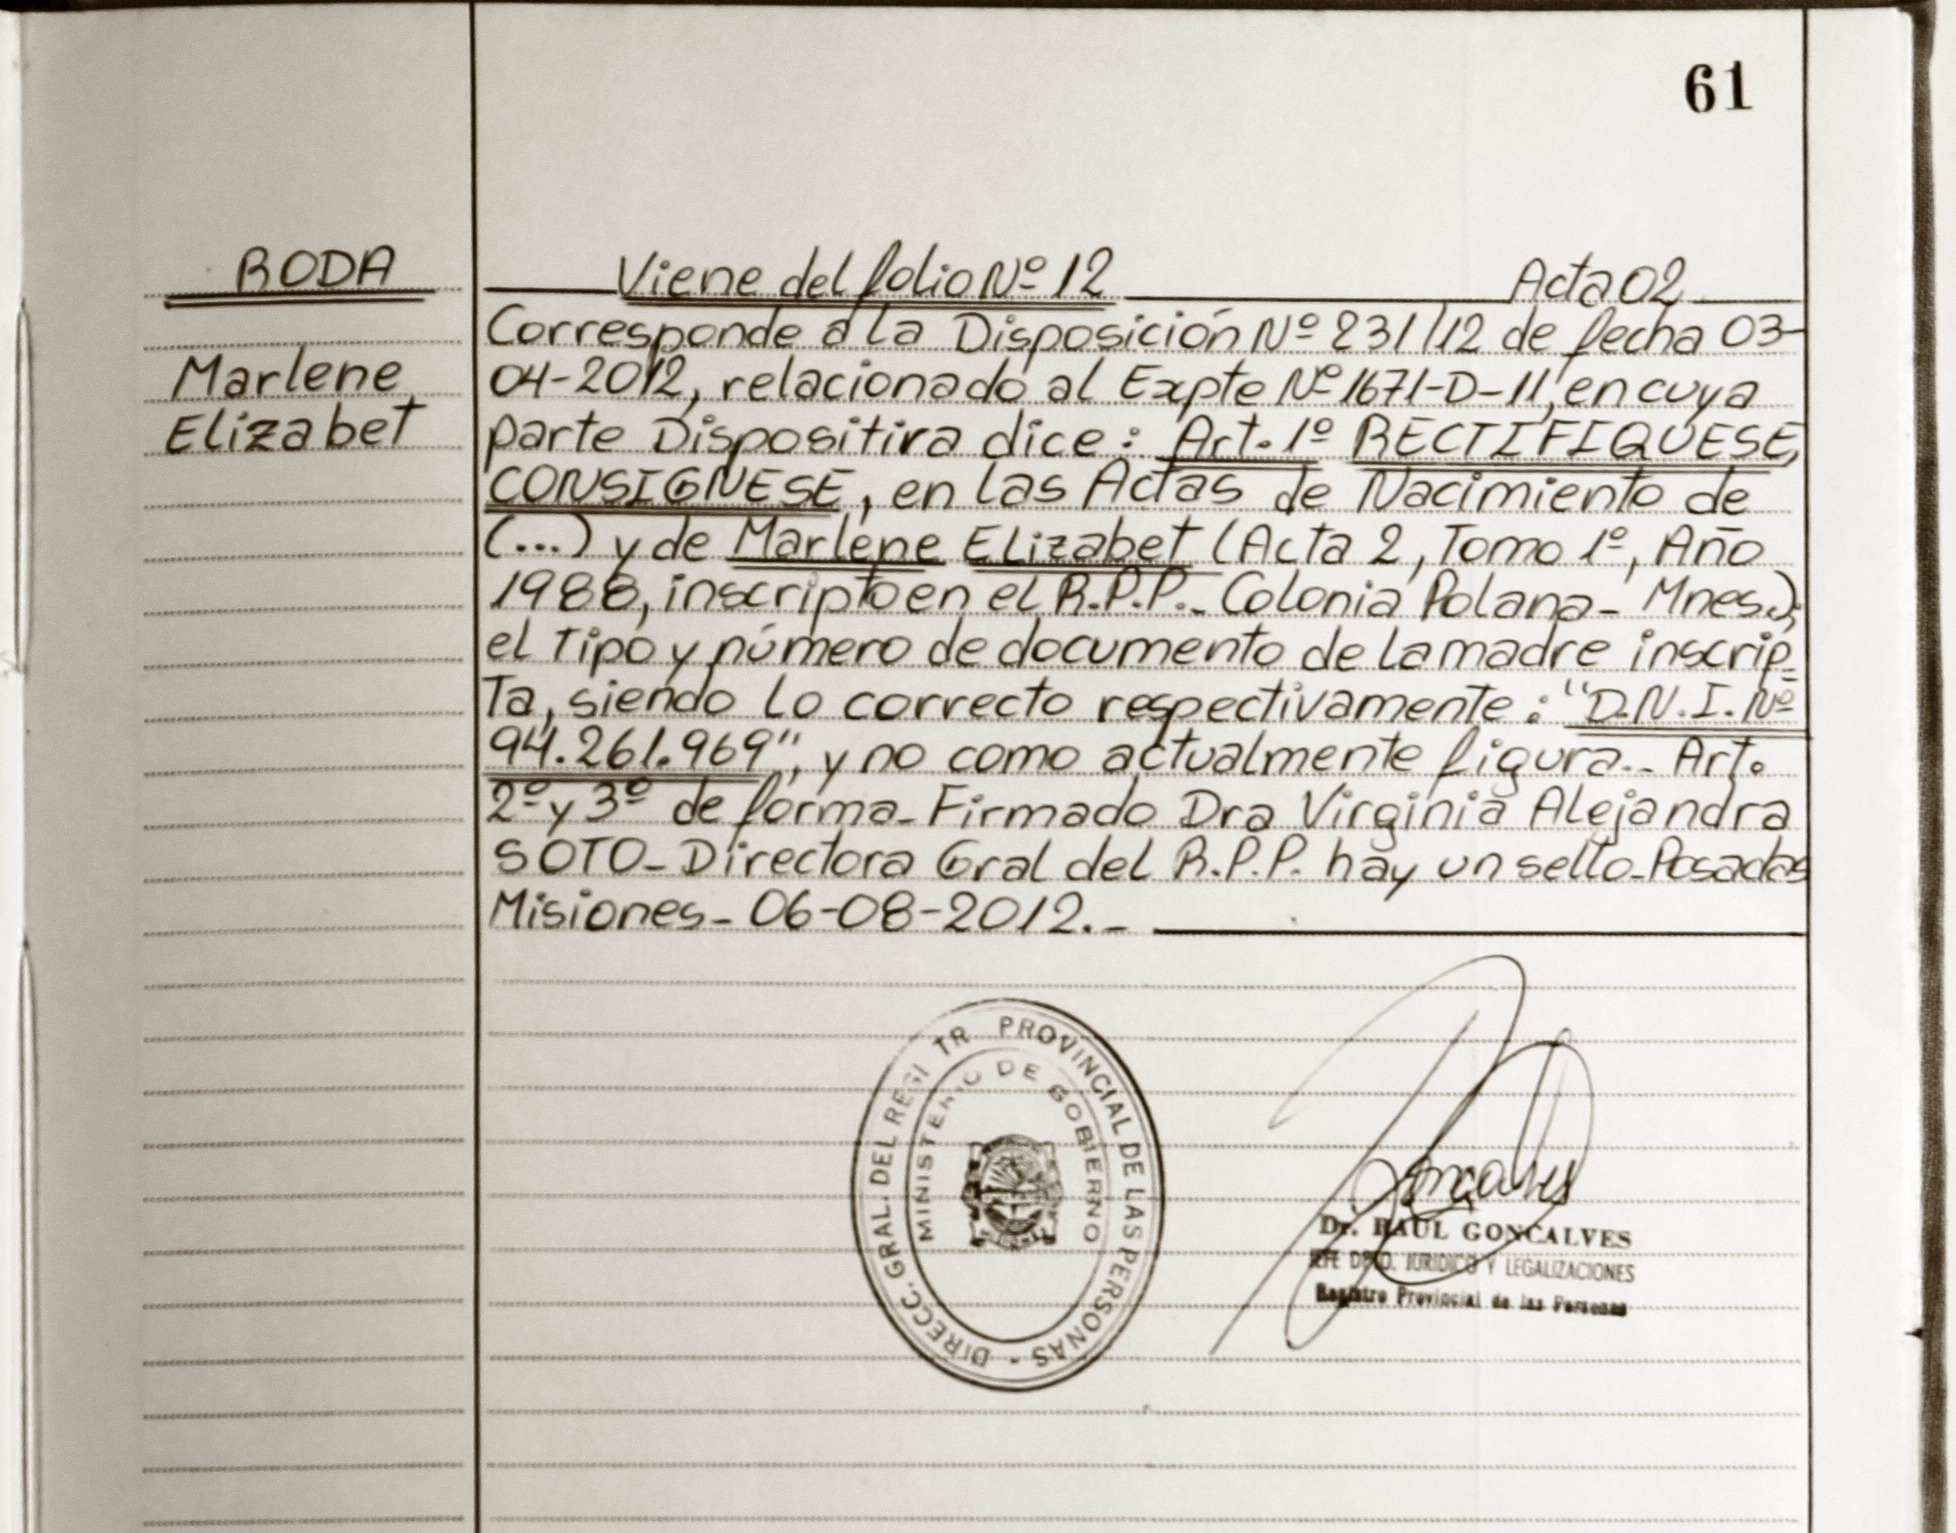 61
RODA
Marlene
Elizabet
Viene del folio Nº 12 Acta 02
Corresponde a la Disposición Nº 231/12 de fecha 03-
04-2012, relacionado al Expte Nº 1671-D-11, en cuya
parte Dispositiva dice: Art. 1º RECTIFIQUESE,
CONSIGNESE, en las Actas de Nacimiento de
(...) y de Marlene Elizabet (Acta 2, Tomo 1º, Año
1988, inscripto en el R.P.P.- Colonia Polana- Mnes.);
el Tipo y número de documento de la madre inscrip-
Ta, siendo lo correcto respectivamente: "D.N.I. Nº
94.261.969", y no como actualmente figura.- Art.
2º y 3º de forma- Firmado Dra Virginia Alejandra
SOTO- Directora Gral del R.P.P. hay un sello- Posadas
Misiones- 06-08-2012.-
DIRECC. GRAL. DEL REGI TR PROVINCIAL DE LAS PERSONAS -
MINISTERIO DE GOBIERNO
Goncalves
Dr. RAUL GONCALVES
JEFE DPTO. JURIDICO Y LEGALIZACIONES
Registro Provincial de las Personas